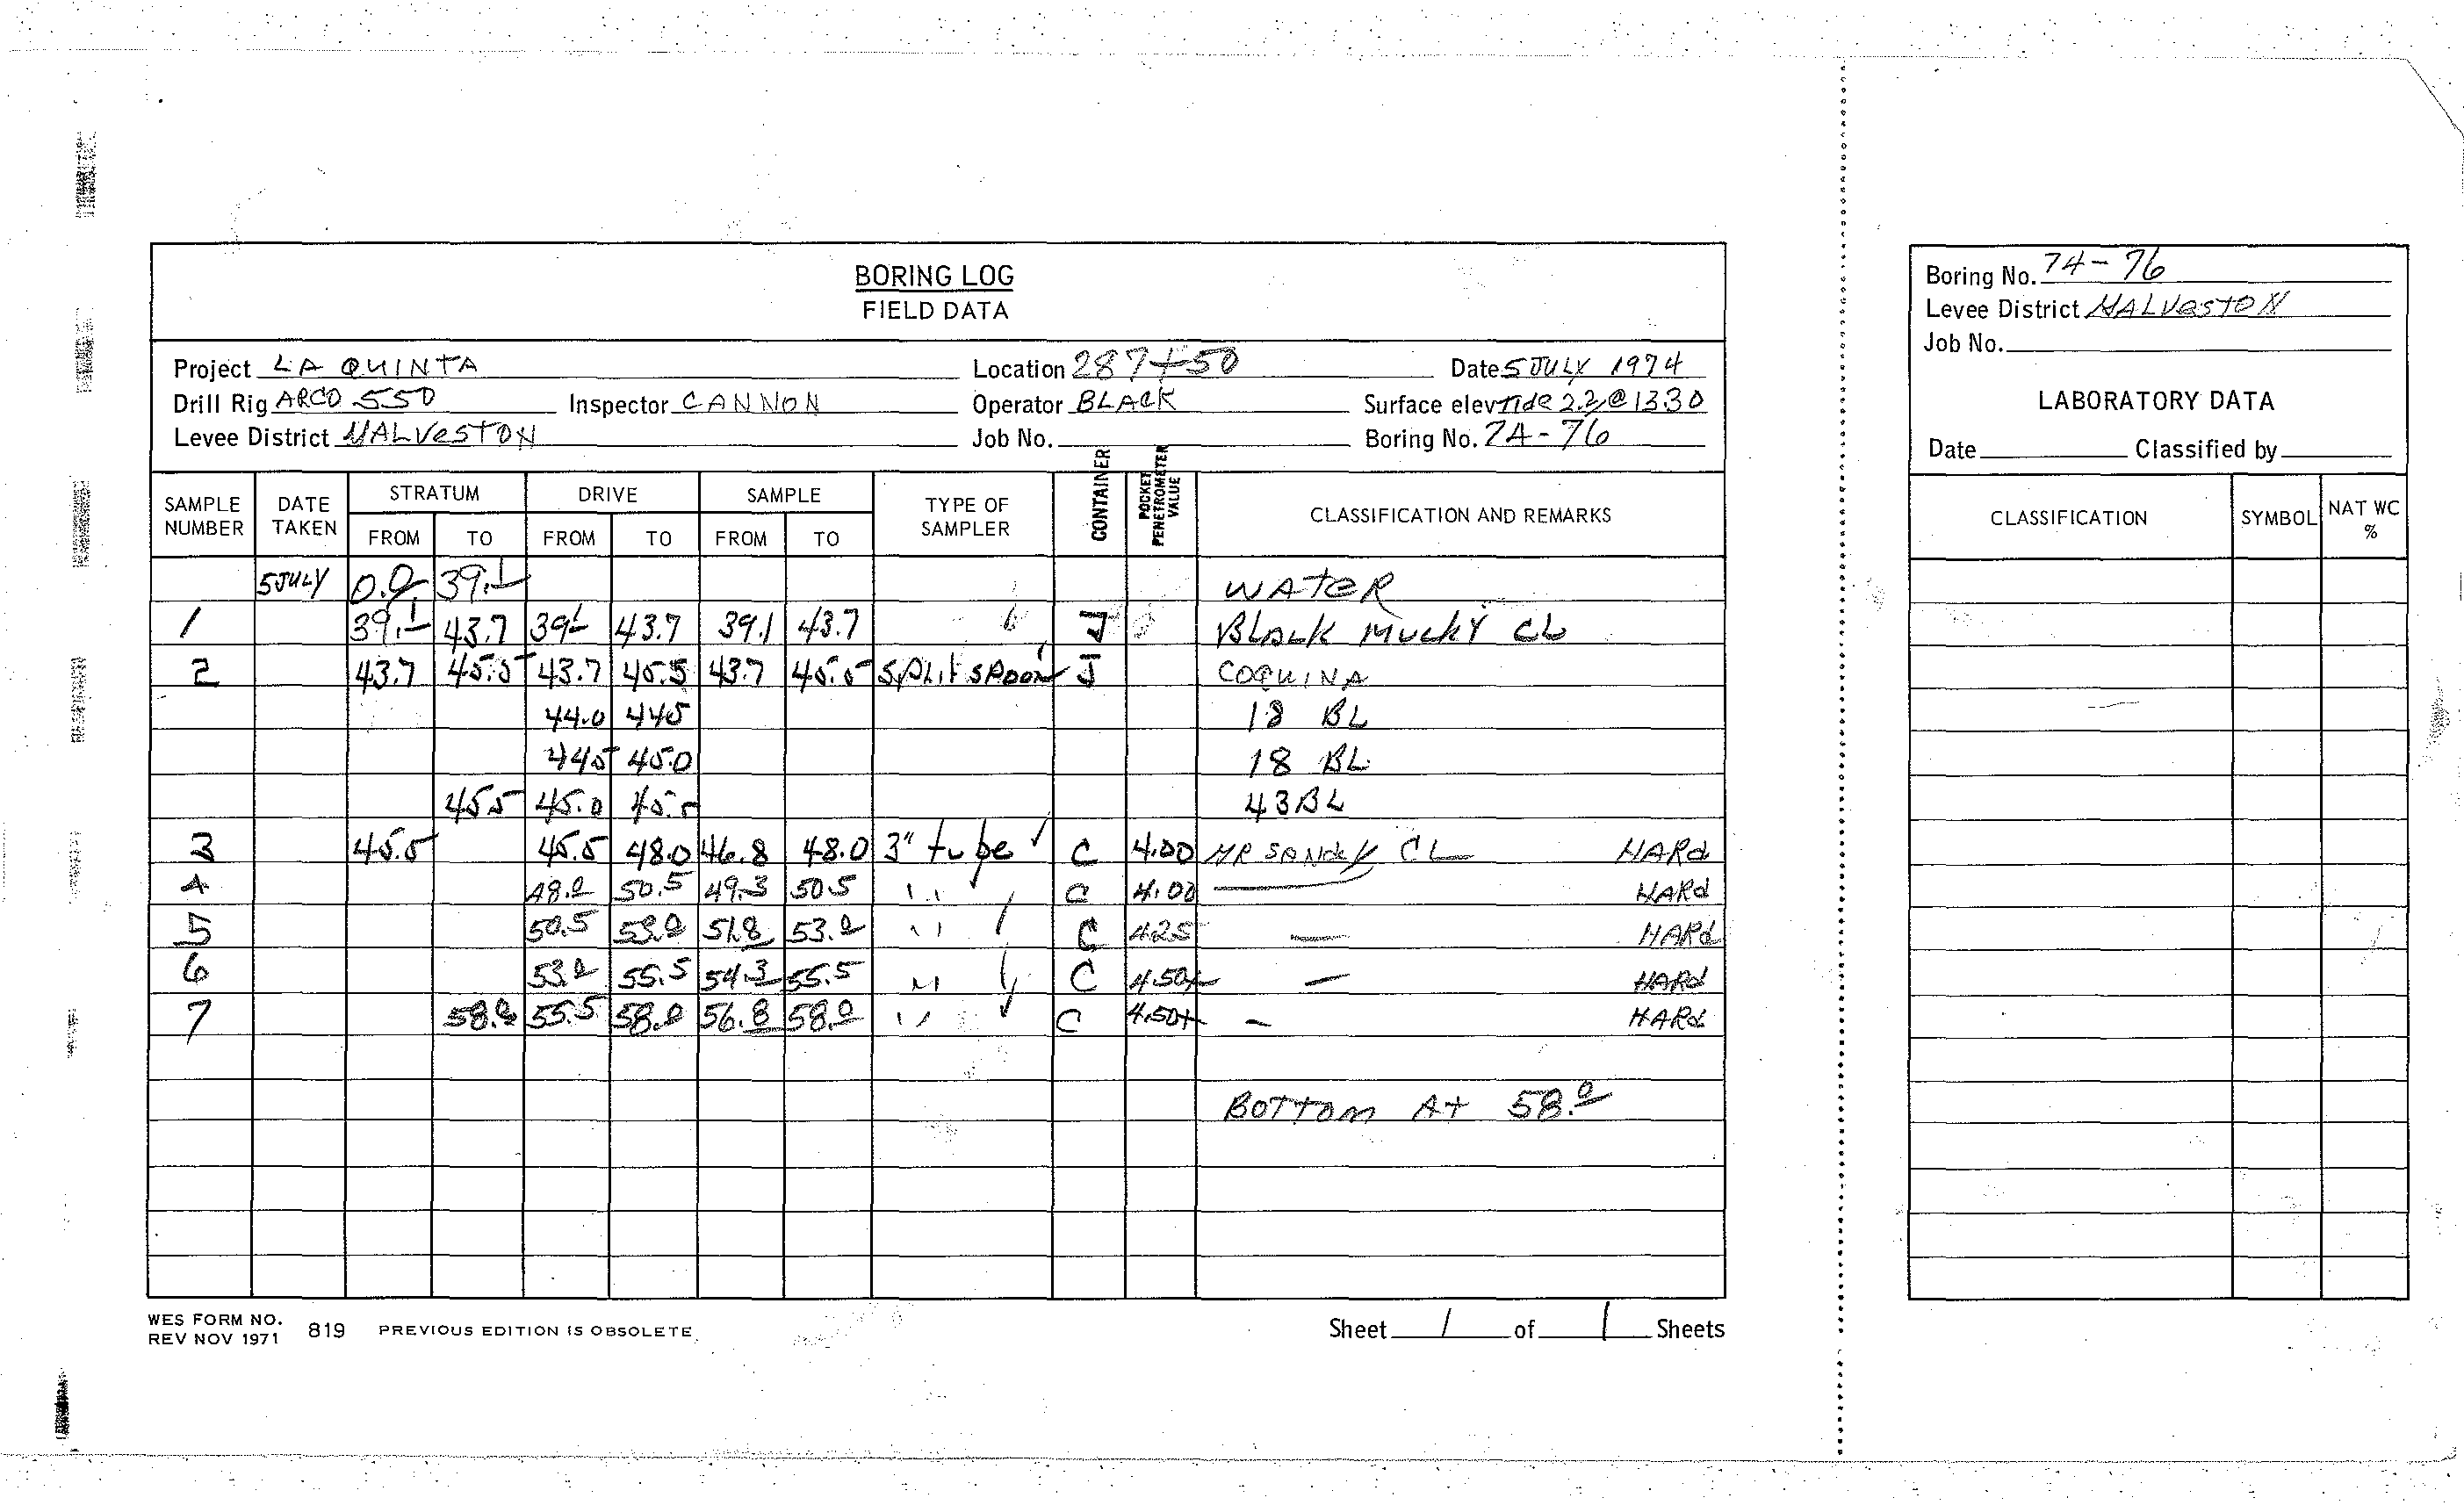 BORING LOG
FIELD DATA
Project LA QUINTA Location 287+50 Date 5 JULY 1974
Drill Rig ARCO 550 Inspector CANNON Operator BLACK Surface elev Tide 2.2 @ 1330
Levee District GALVESTON Job No. Boring No. 74-76
SAMPLE NUMBER DATE TAKEN STRATUM FROM TO DRIVE FROM TO SAMPLE FROM TO TYPE OF SAMPLER CONTAINER POCKET PENETROMETER VALUE CLASSIFICATION AND REMARKS
5 JULY 0.0 39.1 WATER
1 39.1 43.7 39.1 43.7 39.1 43.7 J BLACK MUCKY CL
2 43.7 45.5 43.7 45.5 43.7 45.5 SPLIT SPOON J COQUINA
44.0 445 18 BL
445 45.0 18 BL
455 45.0 45.5 43 BL
3 45.5 45.5 48.0 46.8 48.0 3" tube C 4.00 SANDY CL HARD
4 48.0 50.5 49.3 50.5 " C 4.00 HARD
5 50.5 53.0 51.8 53.0 " C 4.25 — HARD
6 53.0 55.5 54.3 55.5 " C 4.50+ — HARD
7 58.0 55.5 58.0 56.8 58.0 " C 4.50+ — HARD
BOTTOM AT 58.0
WES FORM NO. 819 PREVIOUS EDITION IS OBSOLETE.
REV NOV 1971
Sheet 1 of 1 Sheets
Boring No. 74-76
Levee District GALVESTON
Job No.
LABORATORY DATA
Date Classified by
CLASSIFICATION SYMBOL NAT WC %